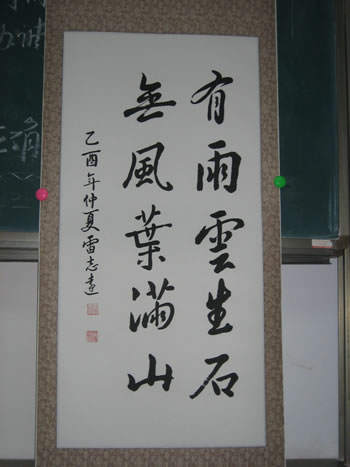 有雨雲生石
無風葉滿山
乙酉年仲夏雷志達